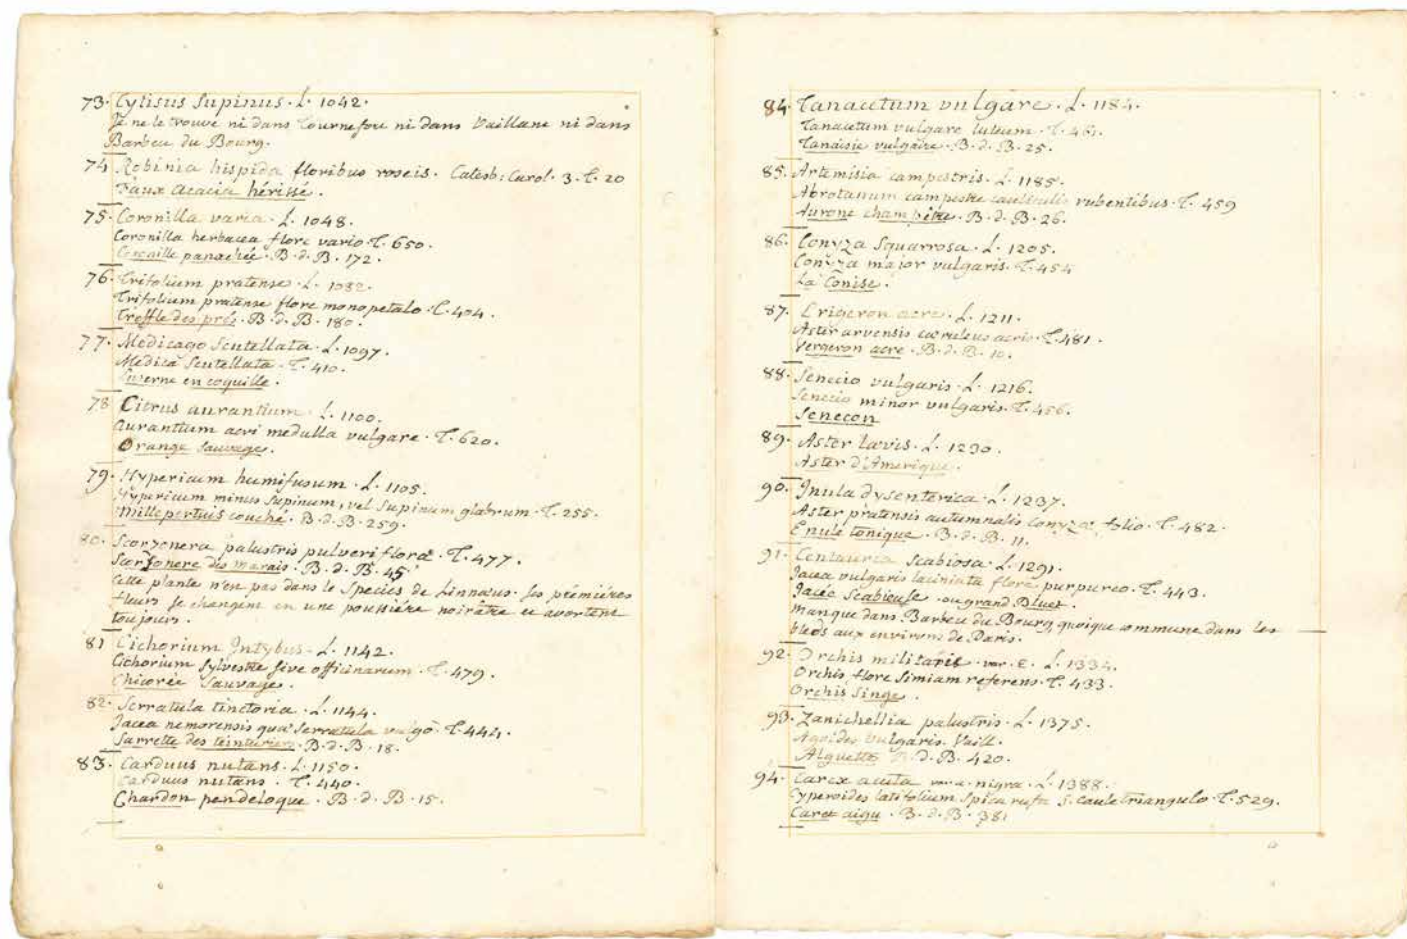 73. Cytisus supinus. L. 1042.
Je ne le trouve ni dans Tournefou ni dans Vaillant ni dans
Barbeu du Bourg.
74 Robinia hispida floribus roseis. Catesb: Carol. 3. T. 20
Faux acacia hérissé.
75. Coronilla varia. L. 1048.
Coronilla herbacea flore vario. T. 650.
panachée. B. d. B. 172.
76. Trifolium pratense. L. 1082.
Trifolium pratense flore monopetalo. T. 404.
Treffle des prés. B. d. B. 180.
77. Medicago Scutellata. L. 1097.
Medica Scutellata. T. 410.
Luzerne en coquille.
78 Citrus aurantium. L. 1100.
Aurantium acri medulla vulgare. T. 620.
Orange Sauvage.
79. Hypericum humifusum. L. 1105.
Hypericum minus supinum, vel supinum glabrum. T. 255.
Millepertuis couché. B. d. B. 259.
80. Scorzonera palustris pulveriflora. T. 477.
Scorzonere des marais. B. d. B. 45
Cette plante n'en pas dans le Species de Linnaeus. ses prémiéres
fleurs se changent en une poussiére noirâtre et avortent
toujours.
81 Cichorium Intybus. L. 1142.
Cichorium sylvestre sive officinarum. T. 479.
Chicorée Sauvage.
82. Serratula tinctoria. L. 1144.
Jacea nemorensis quae Serratula vulgò. T. 444.
Sarrette des teinturiers. B. d. B. 18.
83. Carduus nutans. L. 1150.
Carduus nutans. T. 440.
Chardon pendeloque. B. d. B. 15.
84. Tanacetum vulgare. L. 1184.
Tanacetum vulgare luteum. T. 461.
Tanaisie vulgaire. B. d. B. 25.
85. Artemisia campestris. L. 1185.
Abrotanum campestre cauliculis rubentibus. T. 459
Aurone champêtre. B. d. B. 26.
86. Conyza Squarrosa. L. 1205.
Conyza major vulgaris. T. 454
La Conise.
87. Erigeron acre. L. 1211.
Aster arvensis caeruleus acris. T. 481.
Vergeron acre. B. d. B. 10.
88. Senecio vulgaris. L. 1216.
Senecio minor vulgaris. T. 456.
Senecon
89. Aster laevis. L. 1230.
Aster d'Amerique.
90. Inula dysenterica. L. 1237.
Aster pratensis autumnalis conyzae folio. T. 482.
Enule tonique. B. d. B. 11.
91. Centaurea Scabiosa. L. 1291.
Jacea vulgaris laciniata flore purpureo. T. 443.
Jacée Scabieuse. ou grand Bluet.
manque dans Barbeu du Bourg, quoique commune dans les
bleds aux environs de Paris.
92. Orchis militaris. var. E. L. 1334.
Orchis flore Simiam referens. T. 433.
Orchis Singe.
93. Zanichellia palustris. L. 1375.
Agoides vulgaris. Vaill.
Alguette B. d. B. 420.
94. Carex acuta var. a. nigra. L. 1388.
Cyperoides latifolium Spica rufa S. caule triangulo. T. 529.
Caret aigu. B. d. B. 381